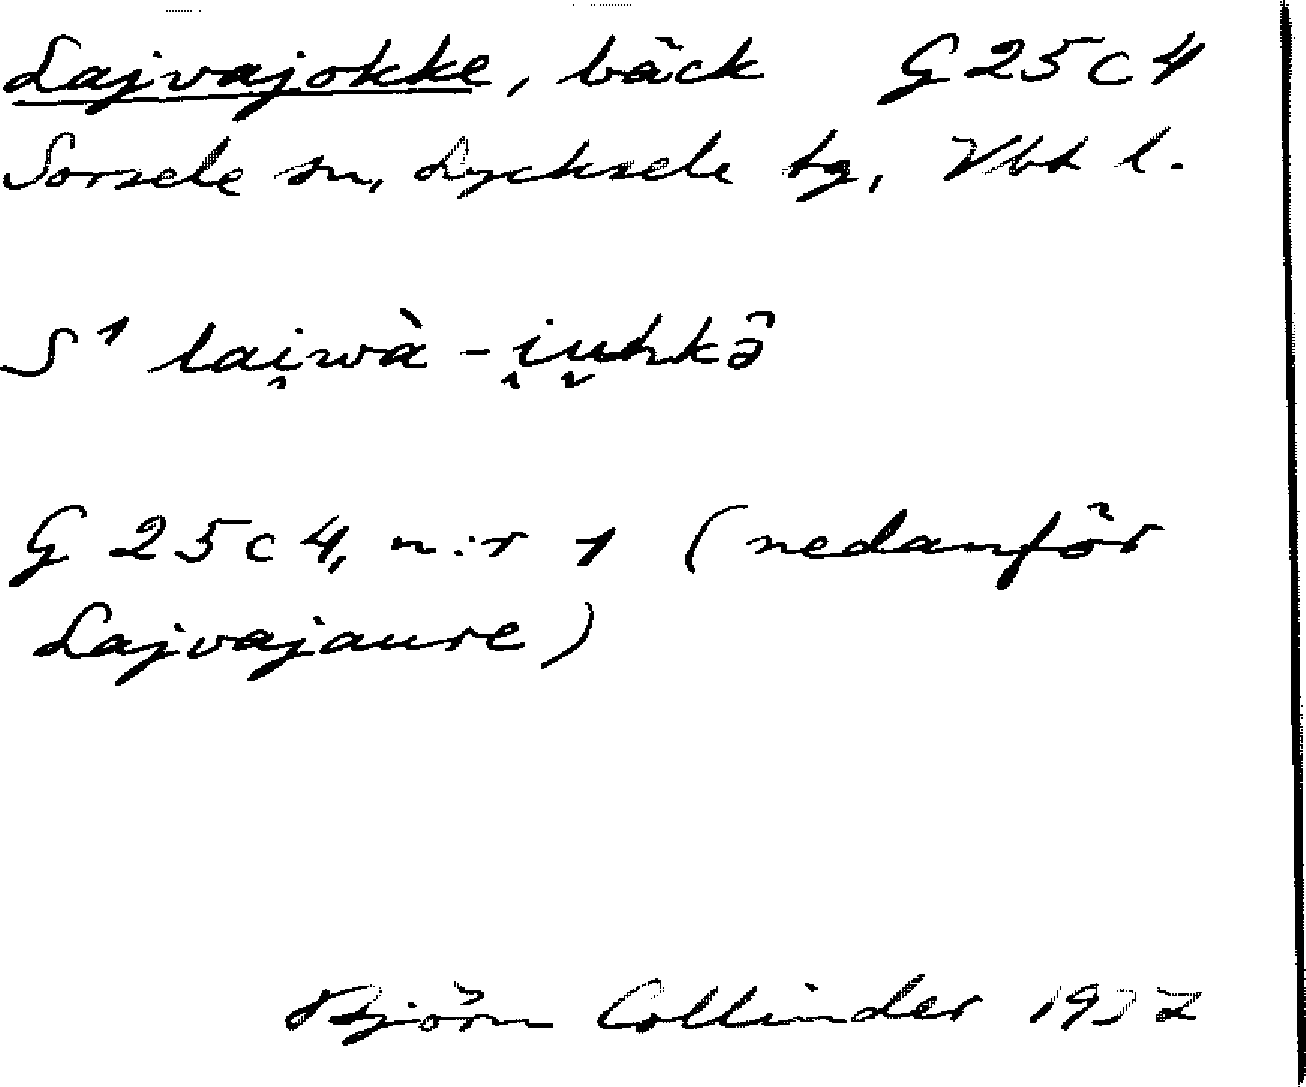 Lajvajokke, bäck G 25 c 4
Sorsele sn, Lycksele tg, Vbt l.
S¹ lai̯wà-i̯u̯hkə̑
G 25 c 4, n:r 1 (nedanför
Lajvajaure)
Björn Collinder 1937